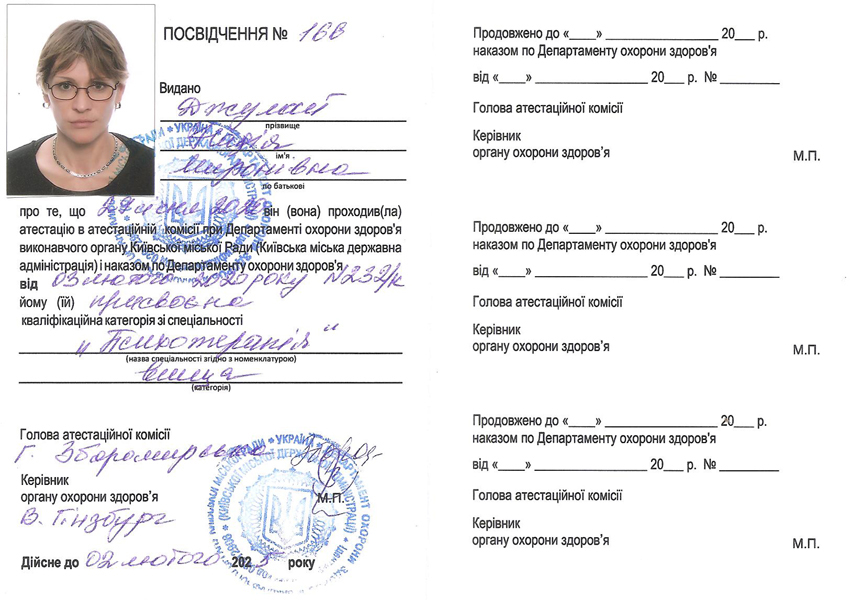 ПОСВІДЧЕННЯ № 16В
Видано
Джулай
прізвище
Надія
ім'я
Миронівна
по батькові
про те, що він (вона) проходив(ла)
атестацію в атестаційній комісії при Департаменті охорони здоров'я
виконавчого органу Київської міської Ради (Київська міська державна
адміністрація) і наказом по Департаменту охорони здоров'я
від 03 лютого 2020 року N232/к
йому (їй) присвоєна
кваліфікаційна категорія зі спеціальності
„Психотерапія"
(назва спеціальності згідно з номенклатурою)
вища
(категорія)
Голова атестаційної комісії
Г. Зборомирська
Керівник
органу охорони здоров'я
М.П.
В. Гінзбург
Дійсне до 02 лютого 202 року
Продовжено до «____» ____________________ 20___ р.
наказом по Департаменту охорони здоров'я
від «____» ____________________ 20___ р. № __________
Голова атестаційної комісії
Керівник
органу охорони здоров'я
М.П.
Продовжено до «____» ____________________ 20___ р.
наказом по Департаменту охорони здоров'я
від «____» ____________________ 20___ р. № __________
Голова атестаційної комісії
Керівник
органу охорони здоров'я
М.П.
Продовжено до «____» ____________________ 20___ р.
наказом по Департаменту охорони здоров'я
від «____» ____________________ 20___ р. № __________
Голова атестаційної комісії
Керівник
органу охорони здоров'я
М.П.